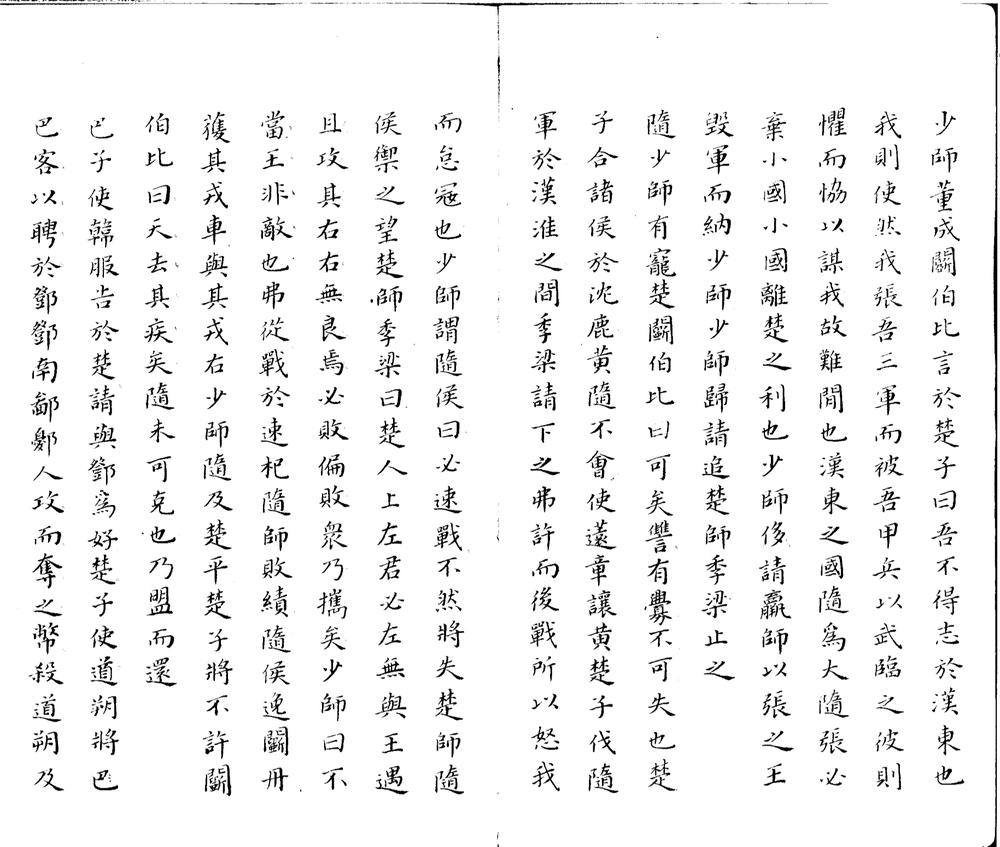 少師董成鬭伯比言於楚子曰吾不得志於漢東也
我則使然我張吾三軍而被吾甲兵以武臨之彼則
懼而恊以謀我故難間也漢東之國隨爲大隨張必
棄小國小國離楚之利也少師侈請羸師以張之王
毀軍而納少師少師歸請追楚師季梁止之
隨少師有寵楚鬭伯比曰可矣讐有釁不可失也楚
子合諸侯於沈鹿黄隨不會使薳章讓黄楚子伐隨
軍於漢淮之間季梁請下之弗許而後戰所以怒我
而怠冦也少師謂隨侯曰必速戰不然將失楚師隨
侯禦之望楚師季梁曰楚人上左君必左無與王遇
且攻其右右無良焉必敗偏敗衆乃攜矣少師曰不
當王非敵也弗從戰於速杞隨師敗績隨侯逸鬭丹
獲其戎車與其戎右少師隨及楚平楚子將不許鬭
伯比曰天去其疾矣隨未可克也乃盟而還
巴子使韓服告於楚請與鄧爲好楚子使道朔將巴
巴客以聘於鄧鄧南鄙鄾人攻而奪之幣殺道朔及